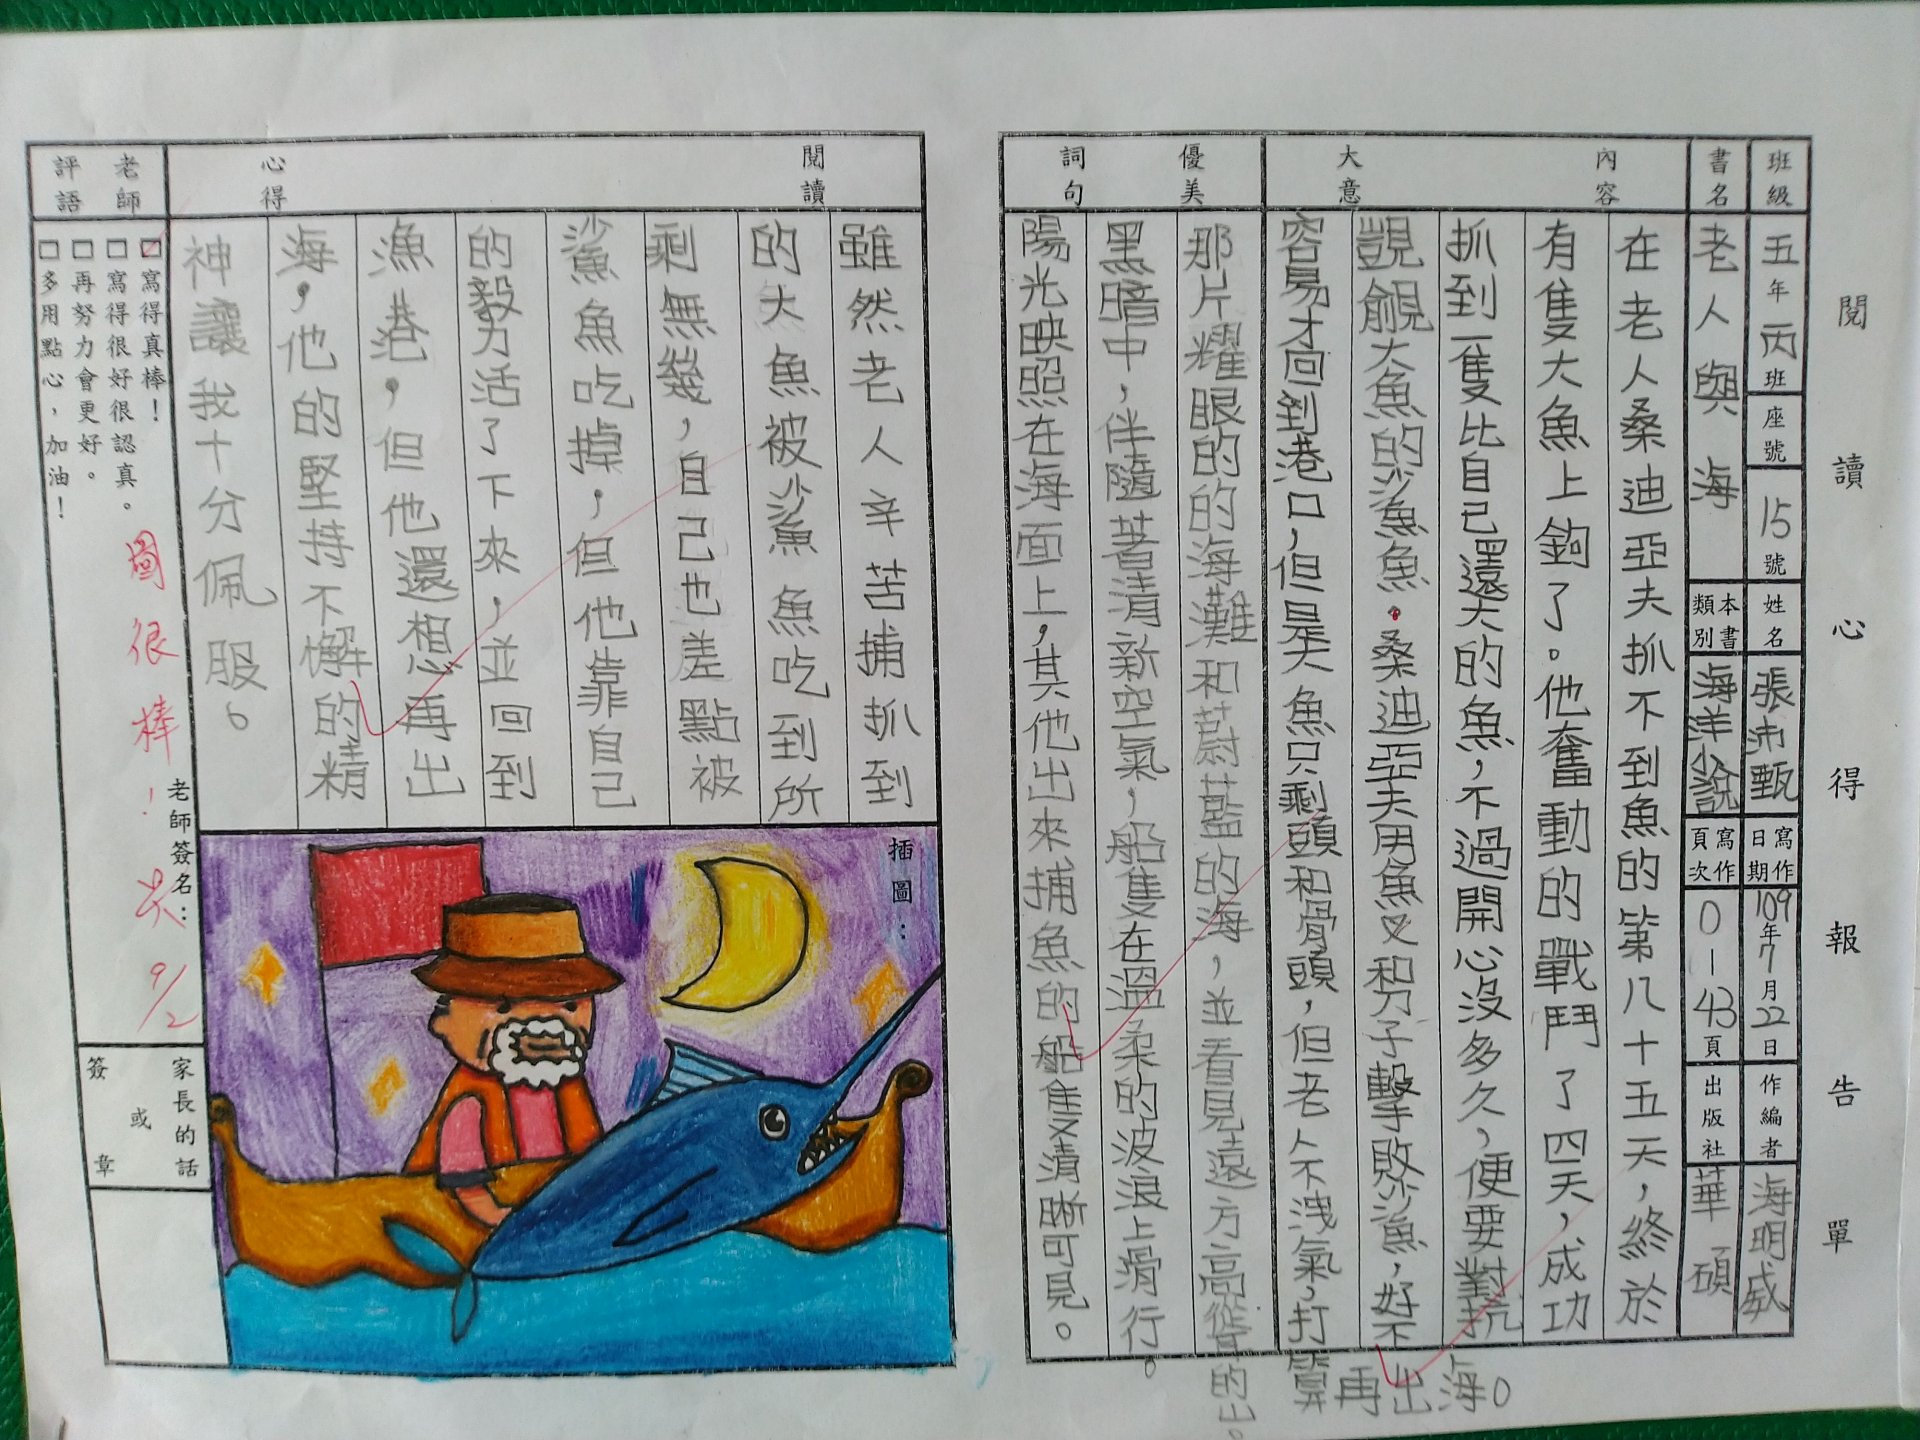 閱讀心得報告單
班級 五年丙班 座號 15號 姓名 張沛甄 寫作日期 109年7月22日 作編者 海明威
書名 老人與海 本書類別 海洋小說 寫作頁次 0-43頁 出版社 華碩
內容大意
在老人桑迪亞夫抓不到魚的第八十五天，終於
有隻大魚上鉤了。他奮動的戰鬥了四天，成功
抓到一隻比自己還大的魚，不過開心沒多久，便要對抗
覬覦大魚的沙魚魚.桑迪亞夫用魚叉和刀子擊敗沙魚，好不
容易才回到港口，但是大魚只剩頭和骨頭，但老人不洩氣，打
算再出海。
優美詞句
那片耀眼的的海灘和蔚藍的海，並看見遠方高聳的山。
黑暗中，伴隨著清新空氣，船隻在溫柔的波浪上滑行。
陽光映照在海面上，其他出來捕魚的船隻清晰可見。
閱讀心得
雖然老人辛苦捕抓到
的大魚被鯊魚吃到所
剩無幾，自己也差點被
鯊魚吃掉，但他靠自己
的毅力活了下來，並回到
漁港，但他還想再出
海，他的堅持不懈的精
神讓我十分佩服。
插圖：
老師評語
□寫得真棒！
□寫得很好很認真。
□再努力會更好。
□多用點心，加油！
圖很棒！
老師簽名：
9/2
家長的話或簽章